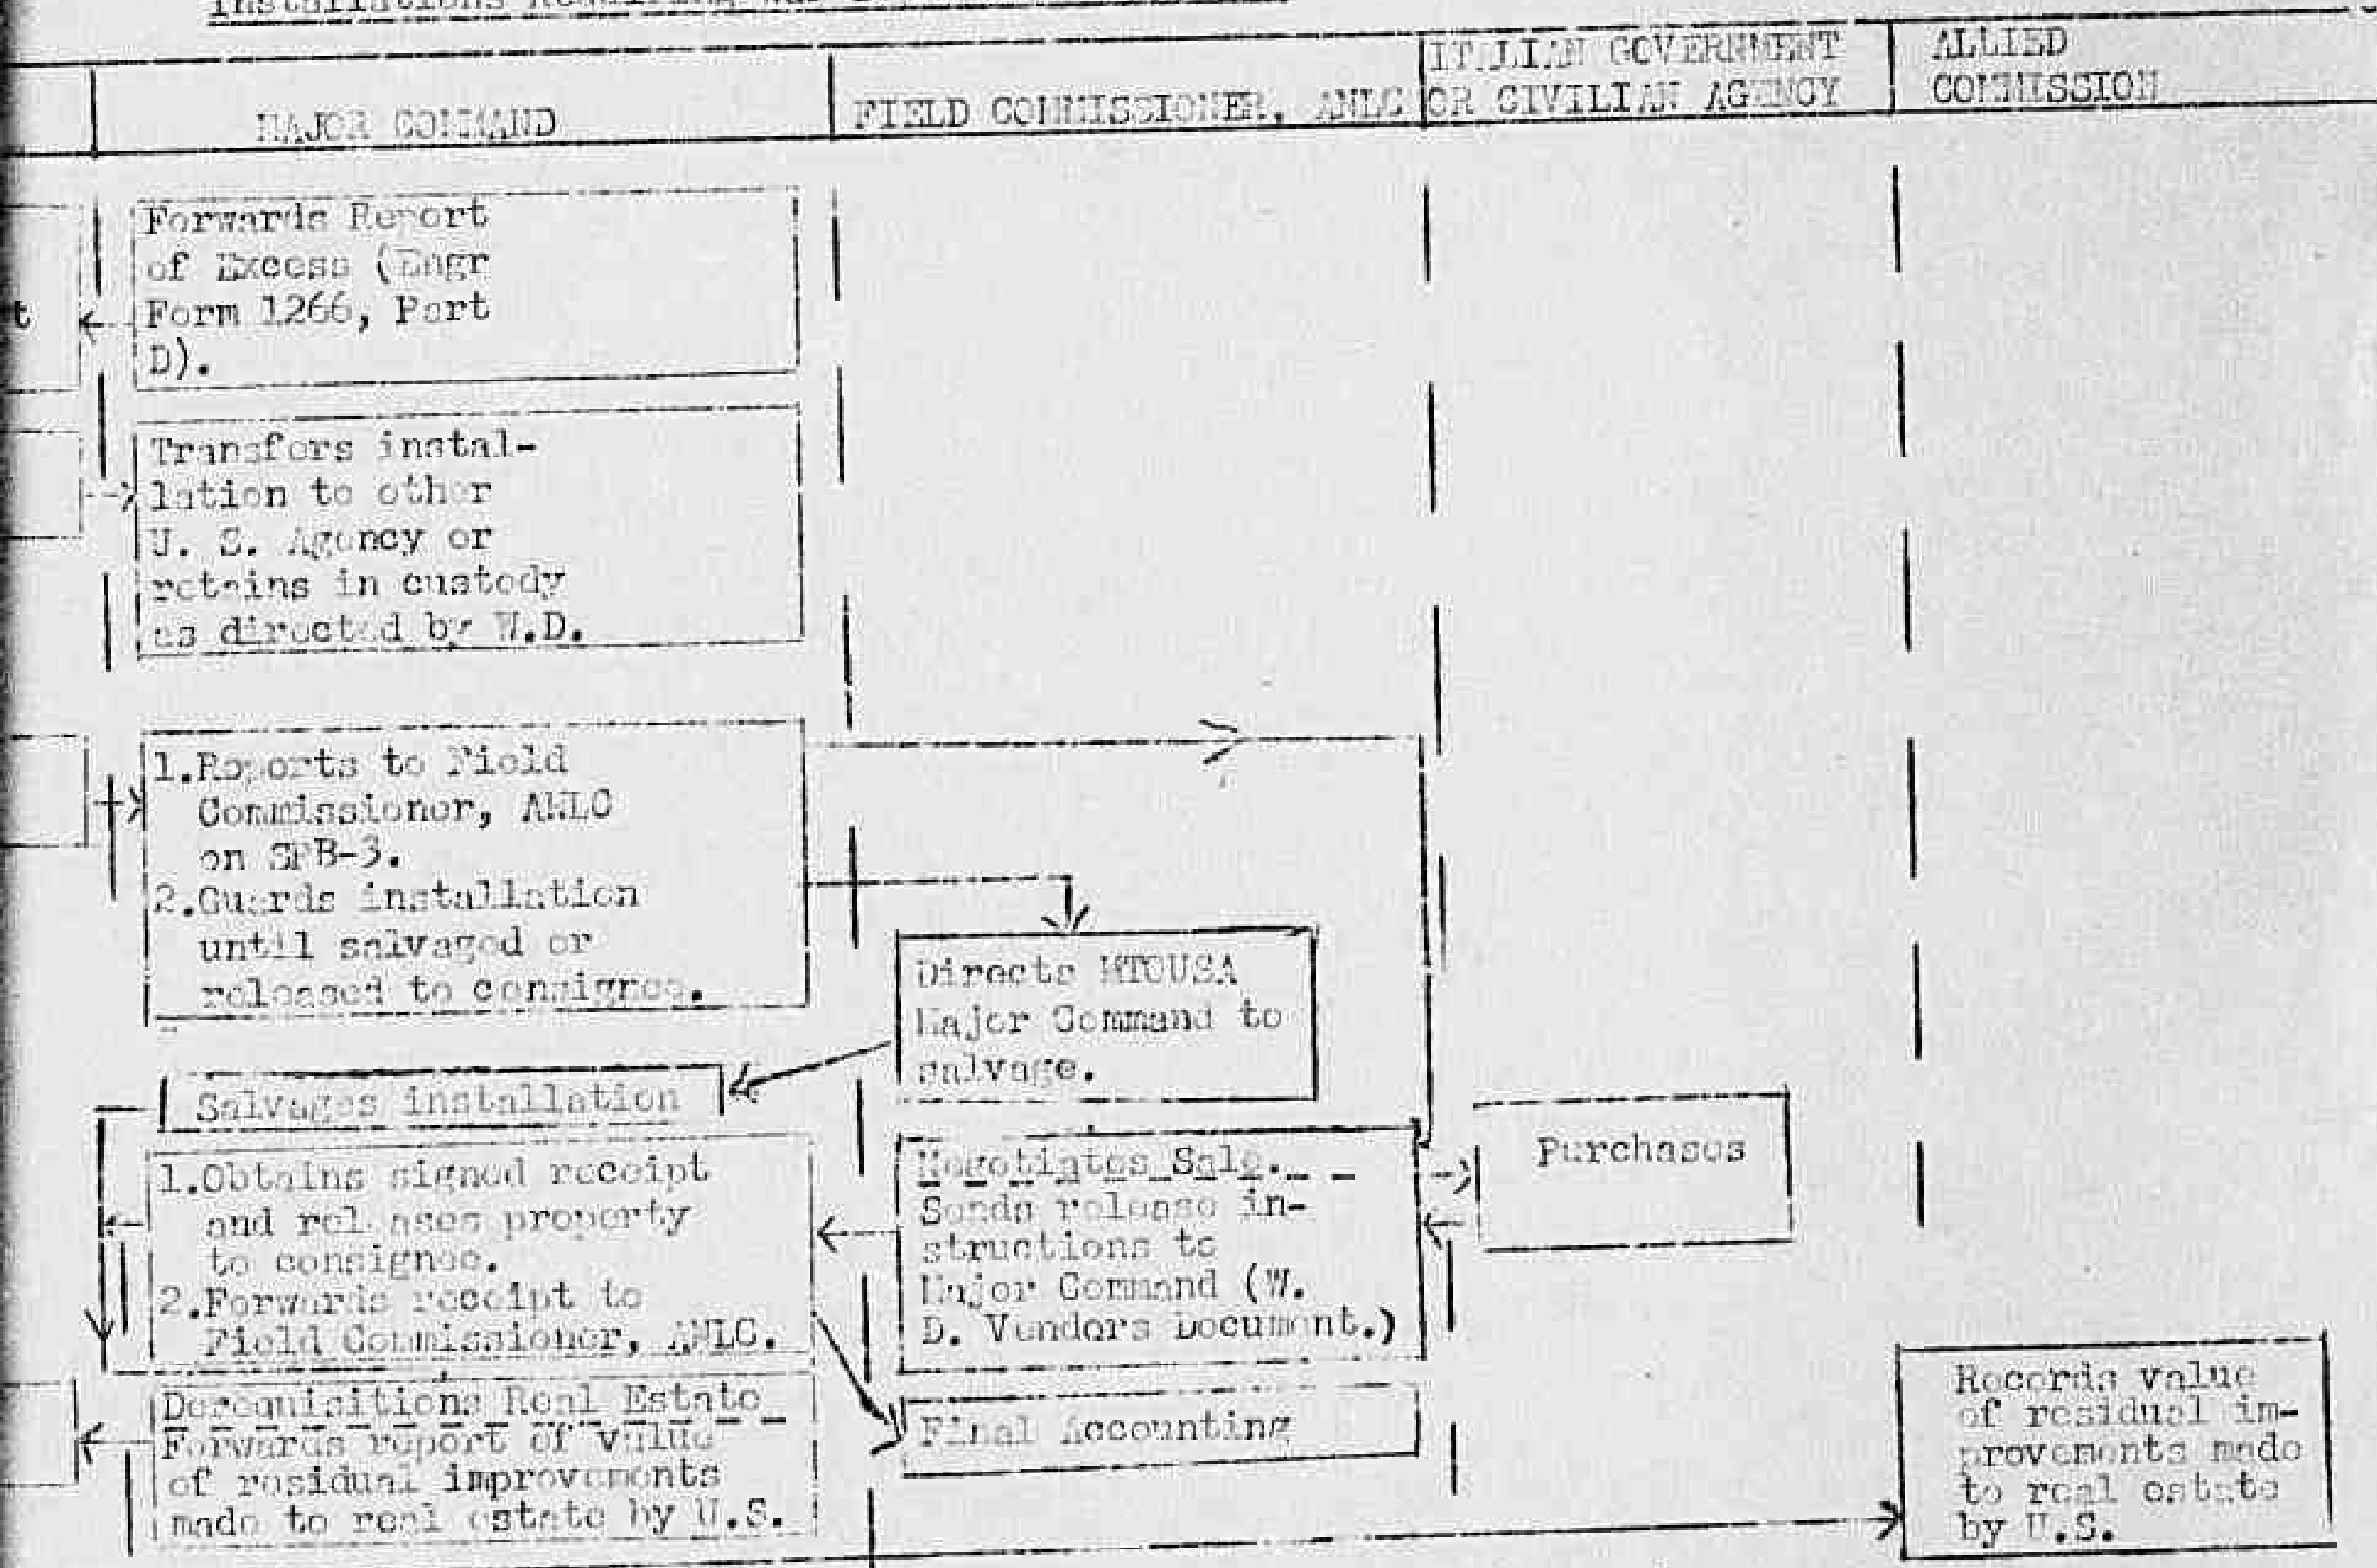 Installations Requiring
MAJOR COMMAND
FIELD COMMISSIONER, ANLC
ITALIAN GOVERNMENT
OR CIVILIAN AGENCY
ALLIED
COMMISSION
t
Forwards Report
of Excess (Engr
Form 1266, Part
D).
Transfers instal-
lation to other
U. S. Agency or
retains in custody
as directed by W.D.
1.Reports to Field
Commissioner, ANLC
on SPB-3.
2.Guards installation
until salvaged or
released to consignee.
Directs MTOUSA
Major Command to
salvage.
Salvages installation
1.Obtains signed receipt
and releases property
to consignee.
2.Forwards receipt to
Field Commissioner, ANLC.
Negotiates Sale.
Sends release in-
structions to
Major Command (W.
D. Vendors Document.)
Purchases
Derequisitions Real Estate
Forwards report of value
of residual improvements
made to real estate by U.S.
Final Accounting
Records value
of residual im-
provements made
to real estate
by U.S.